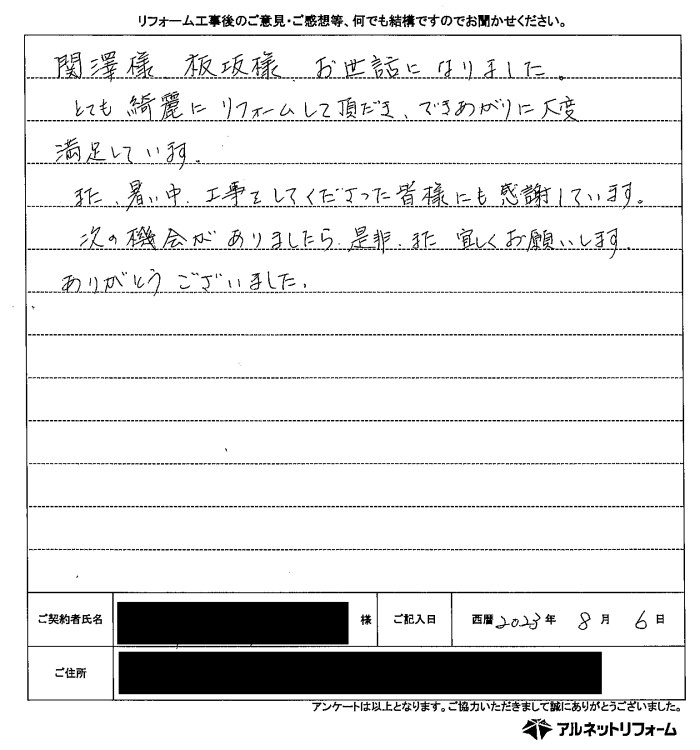 リフォーム工事後のご意見・ご感想等、何でも結構ですのでお聞かせください。
関澤様 板坂様 お世話になりました。
とても 綺麗に リフォームして頂だき、できあがりに大変
満足しています。
また、暑い中、工事をしてくださった皆様にも感謝しています。
次の機会がありましたら、是非、また 宜しくお願いします。
ありがとうございました。
ご契約者氏名 様 ご記入日 西暦 2023 年 8 月 6 日
ご住所
アンケートは以上となります。ご協力いただきまして誠にありがとうございました。
アルネットリフォーム